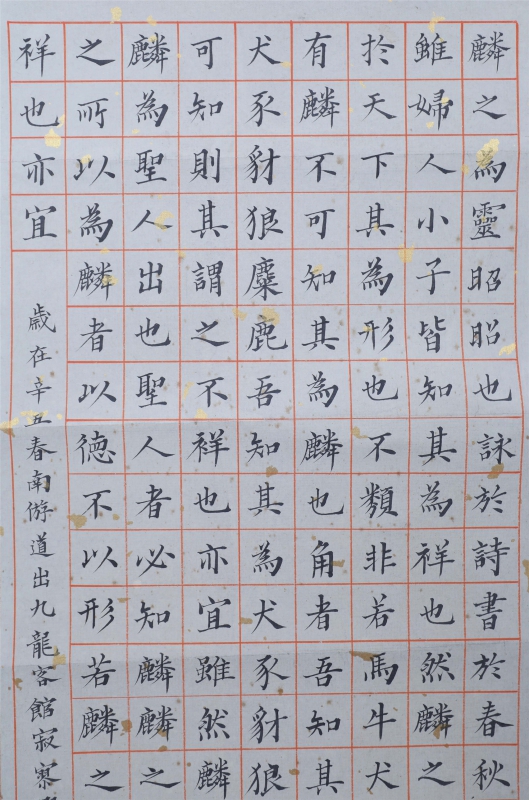 麟之為靈昭昭也詠於詩書於春秋
雖婦人小子皆知其為祥也然麟之
扵天下其為形也不類非若馬牛犬
有麟不可知其為麟也角者吾知其
犬豕豺狼麋鹿吾知其為犬豕豺狼
可知則其謂之不祥也亦宜雖然麟
麟為聖人出也聖人者必知麟麟之
之所以為麟者以德不以形若麟之
祥也亦宜
歲在辛丑春南遊道出九龍客館寂寥